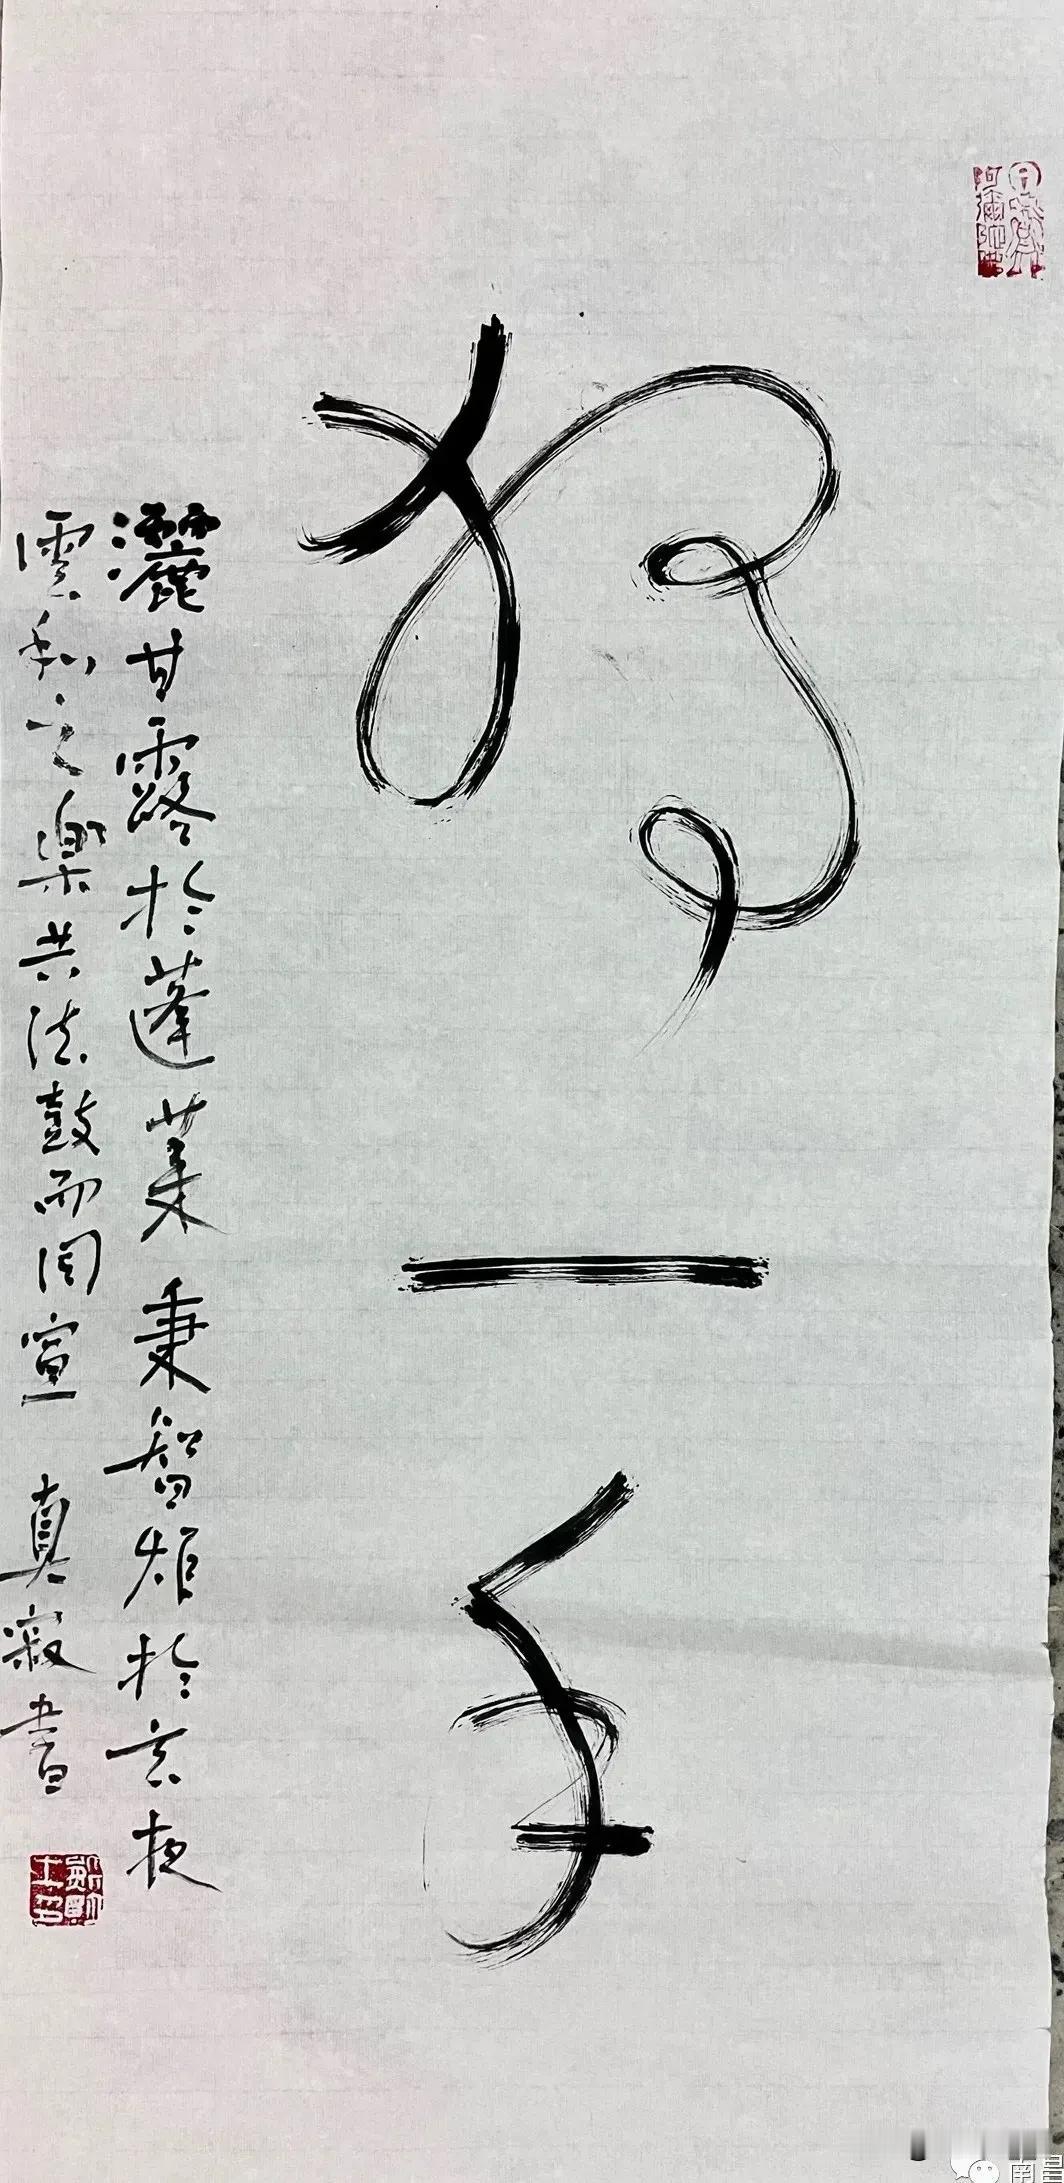 一
灑甘露於蓬萊秉智炬於玄夜
雲和之樂共法鼓而同宣 真寂書
阿彌陀佛
南昌